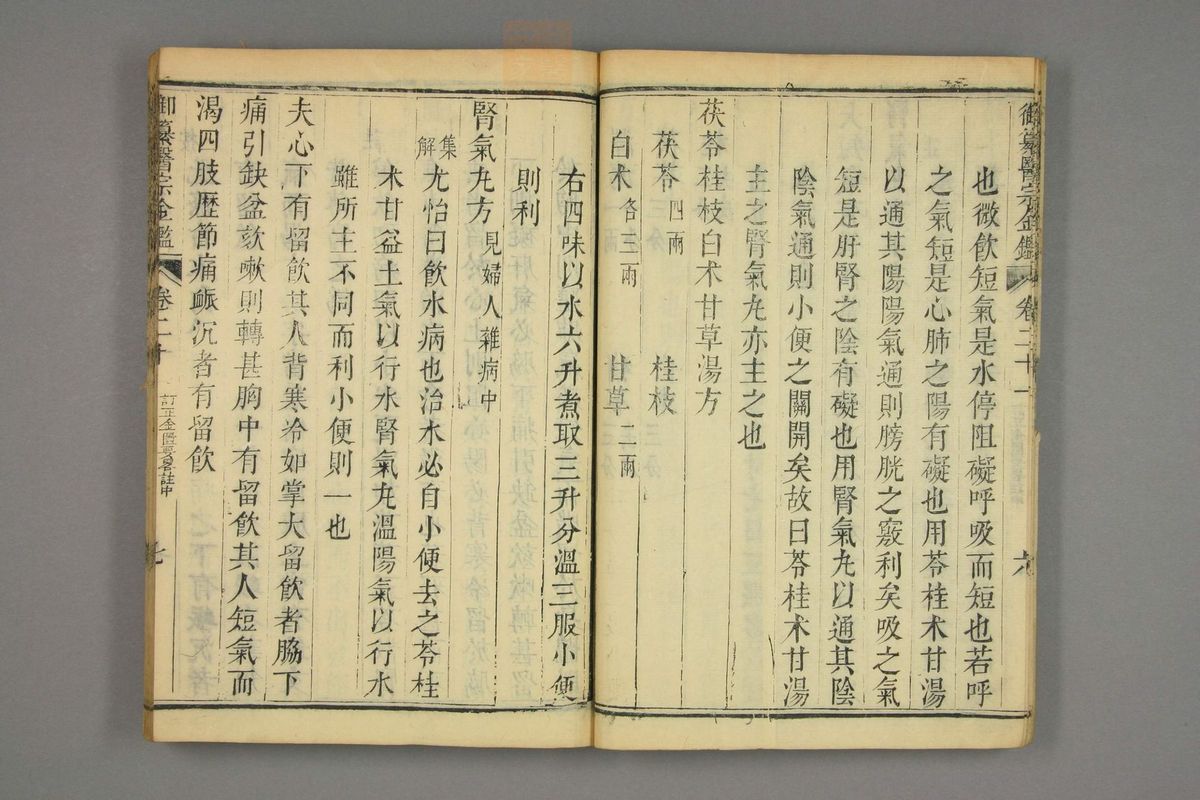 御纂醫宗金鑑 卷二十一 六
也微飲短氣是水停阻礙呼吸而短也若呼
之氣短是心肺之陽有礙也用苓桂术甘湯
以通其陽陽氣通則膀胱之竅利矣吸之氣
短是肝腎之陰有礙也用腎氣丸以通其陰
陰氣通則小便之關開矣故曰苓桂术甘湯
主之腎氣丸亦主之也
茯苓桂枝白术甘草湯方
茯苓四兩 桂枝
白术各三兩 甘草二兩
右四味以水六升煮取三升分溫三服小便
則利
腎氣丸方見婦人雜病中
集解尤怡曰飲水病也治水必自小便去之苓桂
术甘益土氣以行水腎氣丸溫陽氣以行水
雖所主不同而利小便則一也
夫心下有留飲其人背寒冷如掌大留飲者脇下
痛引缺盆欬嗽則轉甚胸中有留飲其人短氣而
渴四肢歷節痛䘑沉者有留飲
御纂醫宗金鑑 卷二十 訂正金匱要畧註中 七